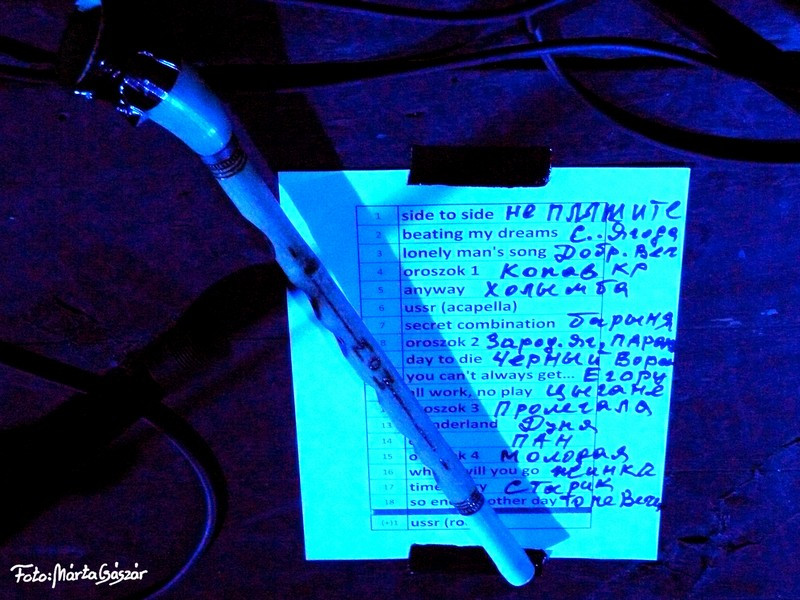 1 side to side не пляшите
2 beating my dreams С.. Ягода
3 lonely man's song Добр. Веч
4 oroszok 1 Копав кр
5 anyway
6 ussr (acapella)
7 secret combination барыня
8 oroszok 2
day to die Черный Ворон
you can't always get... Егору
all work, no play цыгане
oroszok 3 Пролегала
13 Дуня
14 ПАН
15 4 молодая
16 will you go жинка
17 time Старик
18 so en other day то не Веч
(+)1 ussr (ro
Foto: Márta Gászár